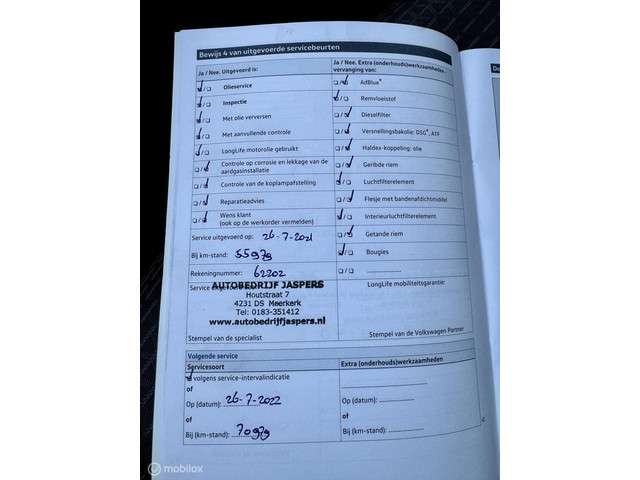 Bewijs 4 van uitgevoerde servicebeurten
Ja / Nee. Uitgevoerd is:
Olieservice
Inspectie
Met olie verversen
Met aanvullende controle
LongLife motorolie gebruikt
Controle op corrosie en lekkage van de
aardgasinstallatie
Controle van de koplampafstelling
Reparatieadvies
Wens klant
(ook op de werkorder vermelden)
Service uitgevoerd op: 26-7-2021
Bij km-stand: 55979
Rekeningnummer: 62202
AUTOBEDRIJF JASPERS
Houtstraat 7
4231 DS Meerkerk
Tel: 0183-351412
www.autobedrijfjaspers.nl
Stempel van de specialist
Ja / Nee. Extra (onderhouds)werkzaamheden
vervanging van:
AdBlue®
Remvloeistof
Dieselfilter
Versnellingsbakolie: DSG®, ATF
Haldex-koppeling: olie
Geribde riem
Luchtfilterelement
Flesje met bandenafdichtmiddel
Interieurluchtfilterelement
Getande riem
Bougies
LongLife mobiliteitsgarantie:
Stempel van de Volkswagen Partner
Volgende service
Servicesoort
volgens service-intervalindicatie
of
Op (datum): 26-7-2022
of
Bij (km-stand): 70979
Extra (onderhouds)werkzaamheden
of
Op (datum):
of
Bij (km-stand):
mobilox